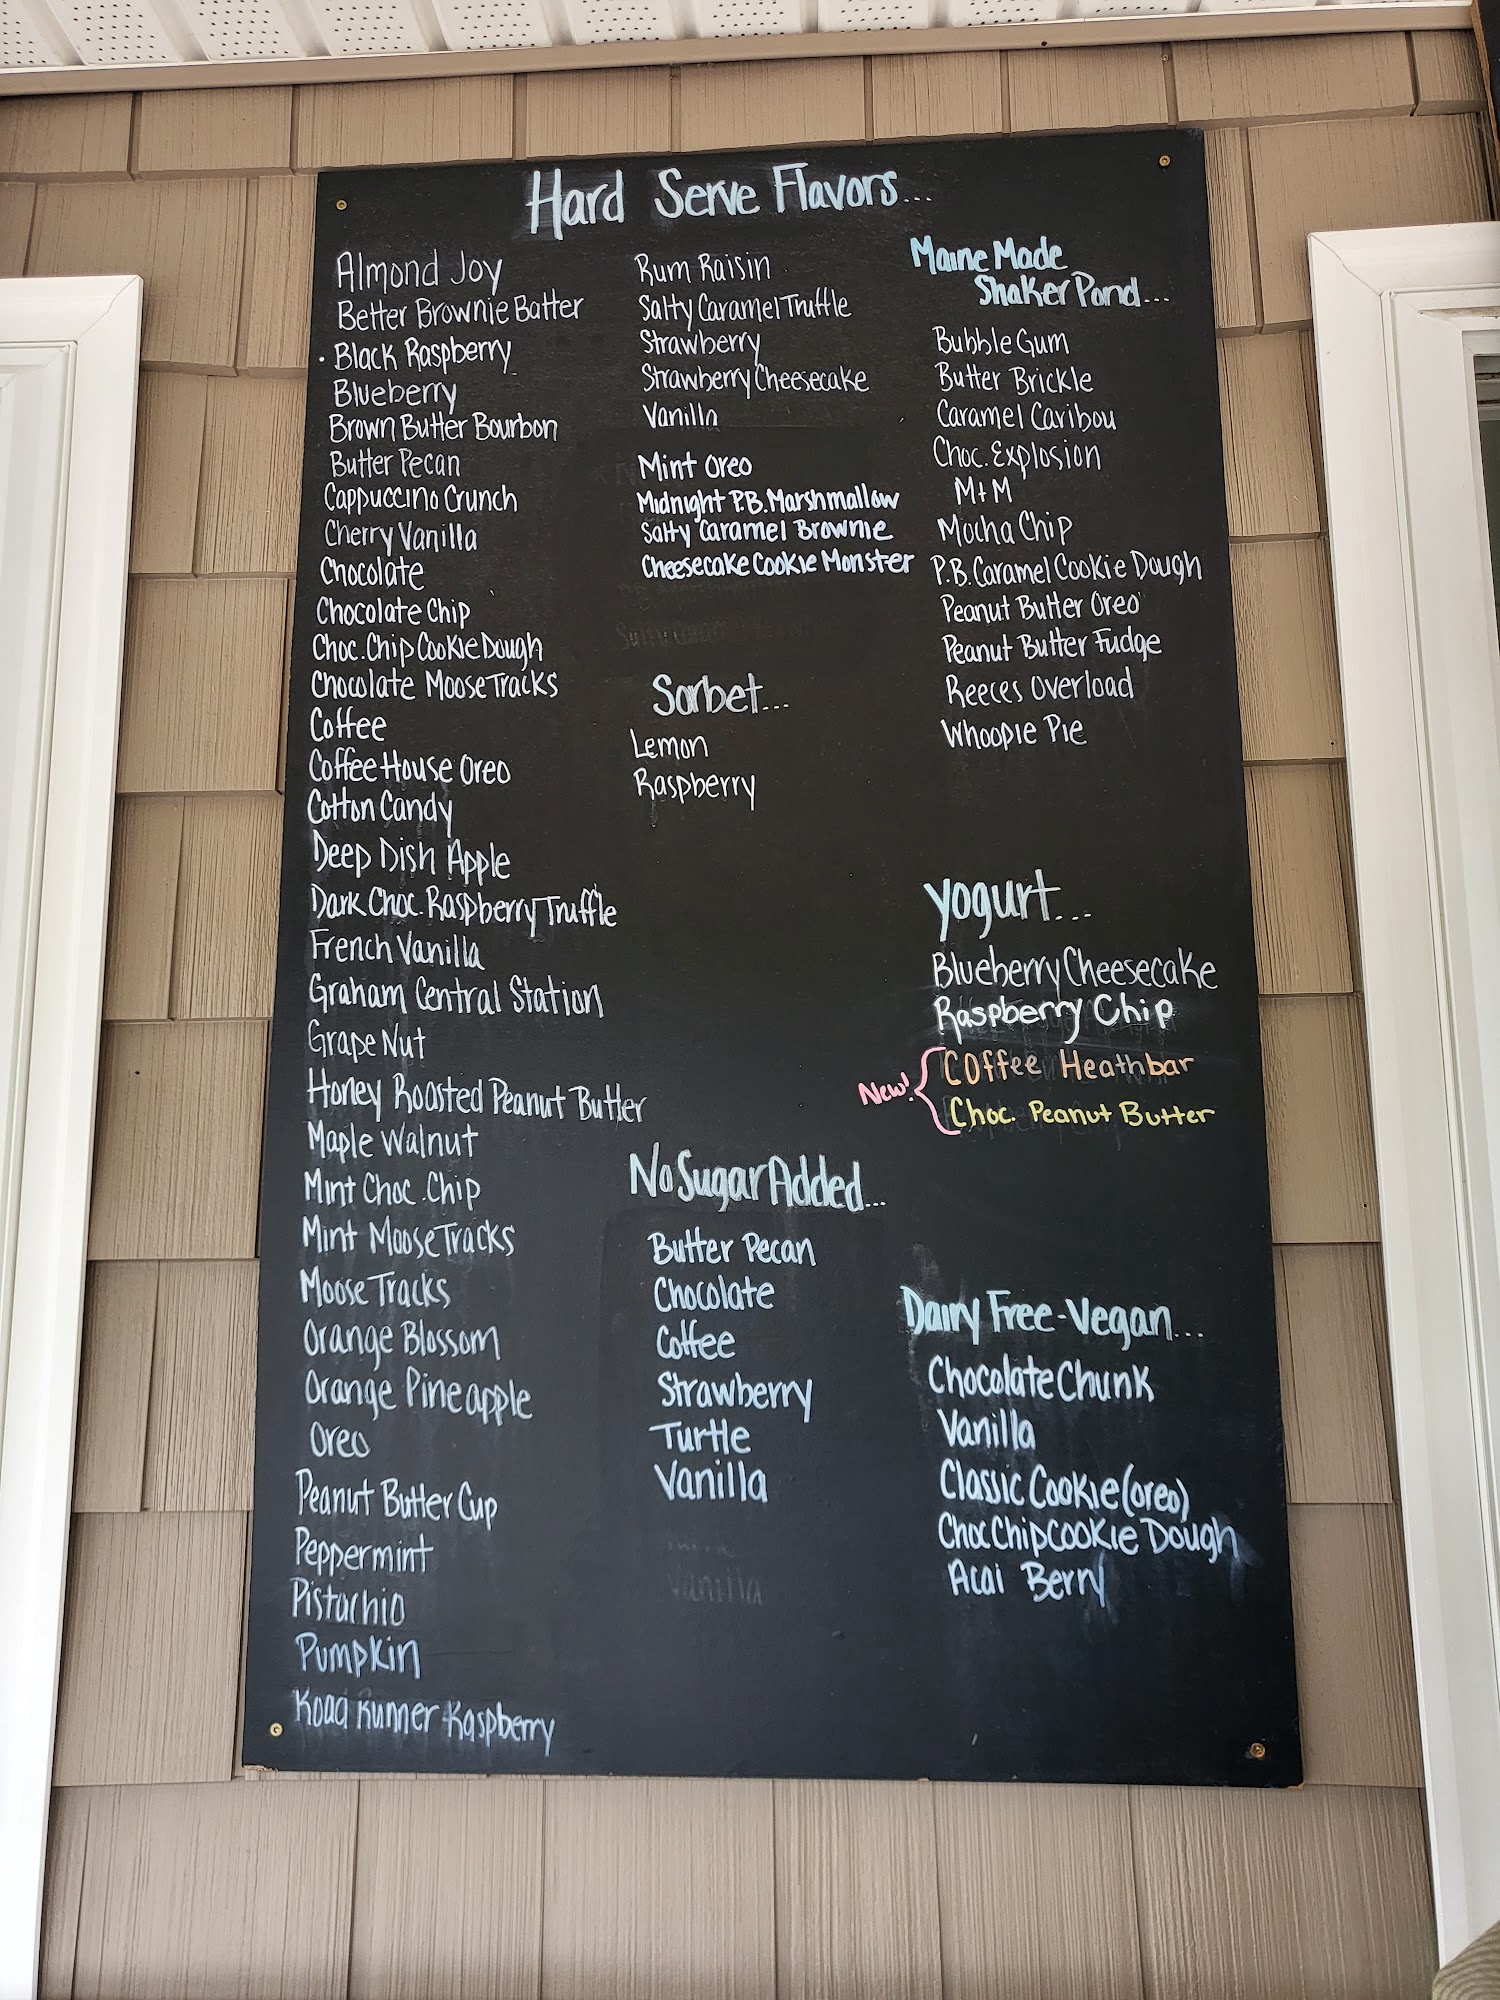 Hard Serve Flavors...
Almond Joy
Better Brownie Batter
• Black Raspberry
Blueberry
Brown Butter Bourbon
Butter Pecan
Cappuccino Crunch
Cherry Vanilla
Chocolate
Chocolate Chip
Choc. Chip Cookie Dough
Chocolate Moose Tracks
Coffee
Coffee House Oreo
Cotton Candy
Deep Dish Apple
Dark Choc. Raspberry Truffle
French Vanilla
Graham Central Station
Grape Nut
Honey Roasted Peanut Butter
Maple Walnut
Mint Choc. Chip
Mint Moose Tracks
Moose Tracks
Orange Blossom
Orange Pineapple
Oreo
Peanut Butter Cup
Peppermint
Pistachio
Pumpkin
Road Runner Raspberry
Rum Raisin
Salty Caramel Truffle
Strawberry
Strawberry Cheesecake
Vanilla
Mint Oreo
Midnight P.B. Marshmallow
Salty Caramel Brownie
Cheesecake Cookie Monster
Sorbet...
Lemon
Raspberry
No Sugar Added...
Butter Pecan
Chocolate
Coffee
Strawberry
Turtle
Vanilla
Vanilla
Maine Made
Shaker Pond...
Bubble Gum
Butter Brickle
Caramel Caribou
Choc. Explosion
M+M
Mocha Chip
P.B. Caramel Cookie Dough
Peanut Butter Oreo
Peanut Butter Fudge
Reeces Overload
Whoopie Pie
Yogurt...
Blueberry Cheesecake
Raspberry Chip
New!
Coffee Heathbar
Choc. Peanut Butter
Dairy Free-Vegan...
Chocolate Chunk
Vanilla
Classic Cookie (oreo)
Choc Chip Cookie Dough
Acai Berry